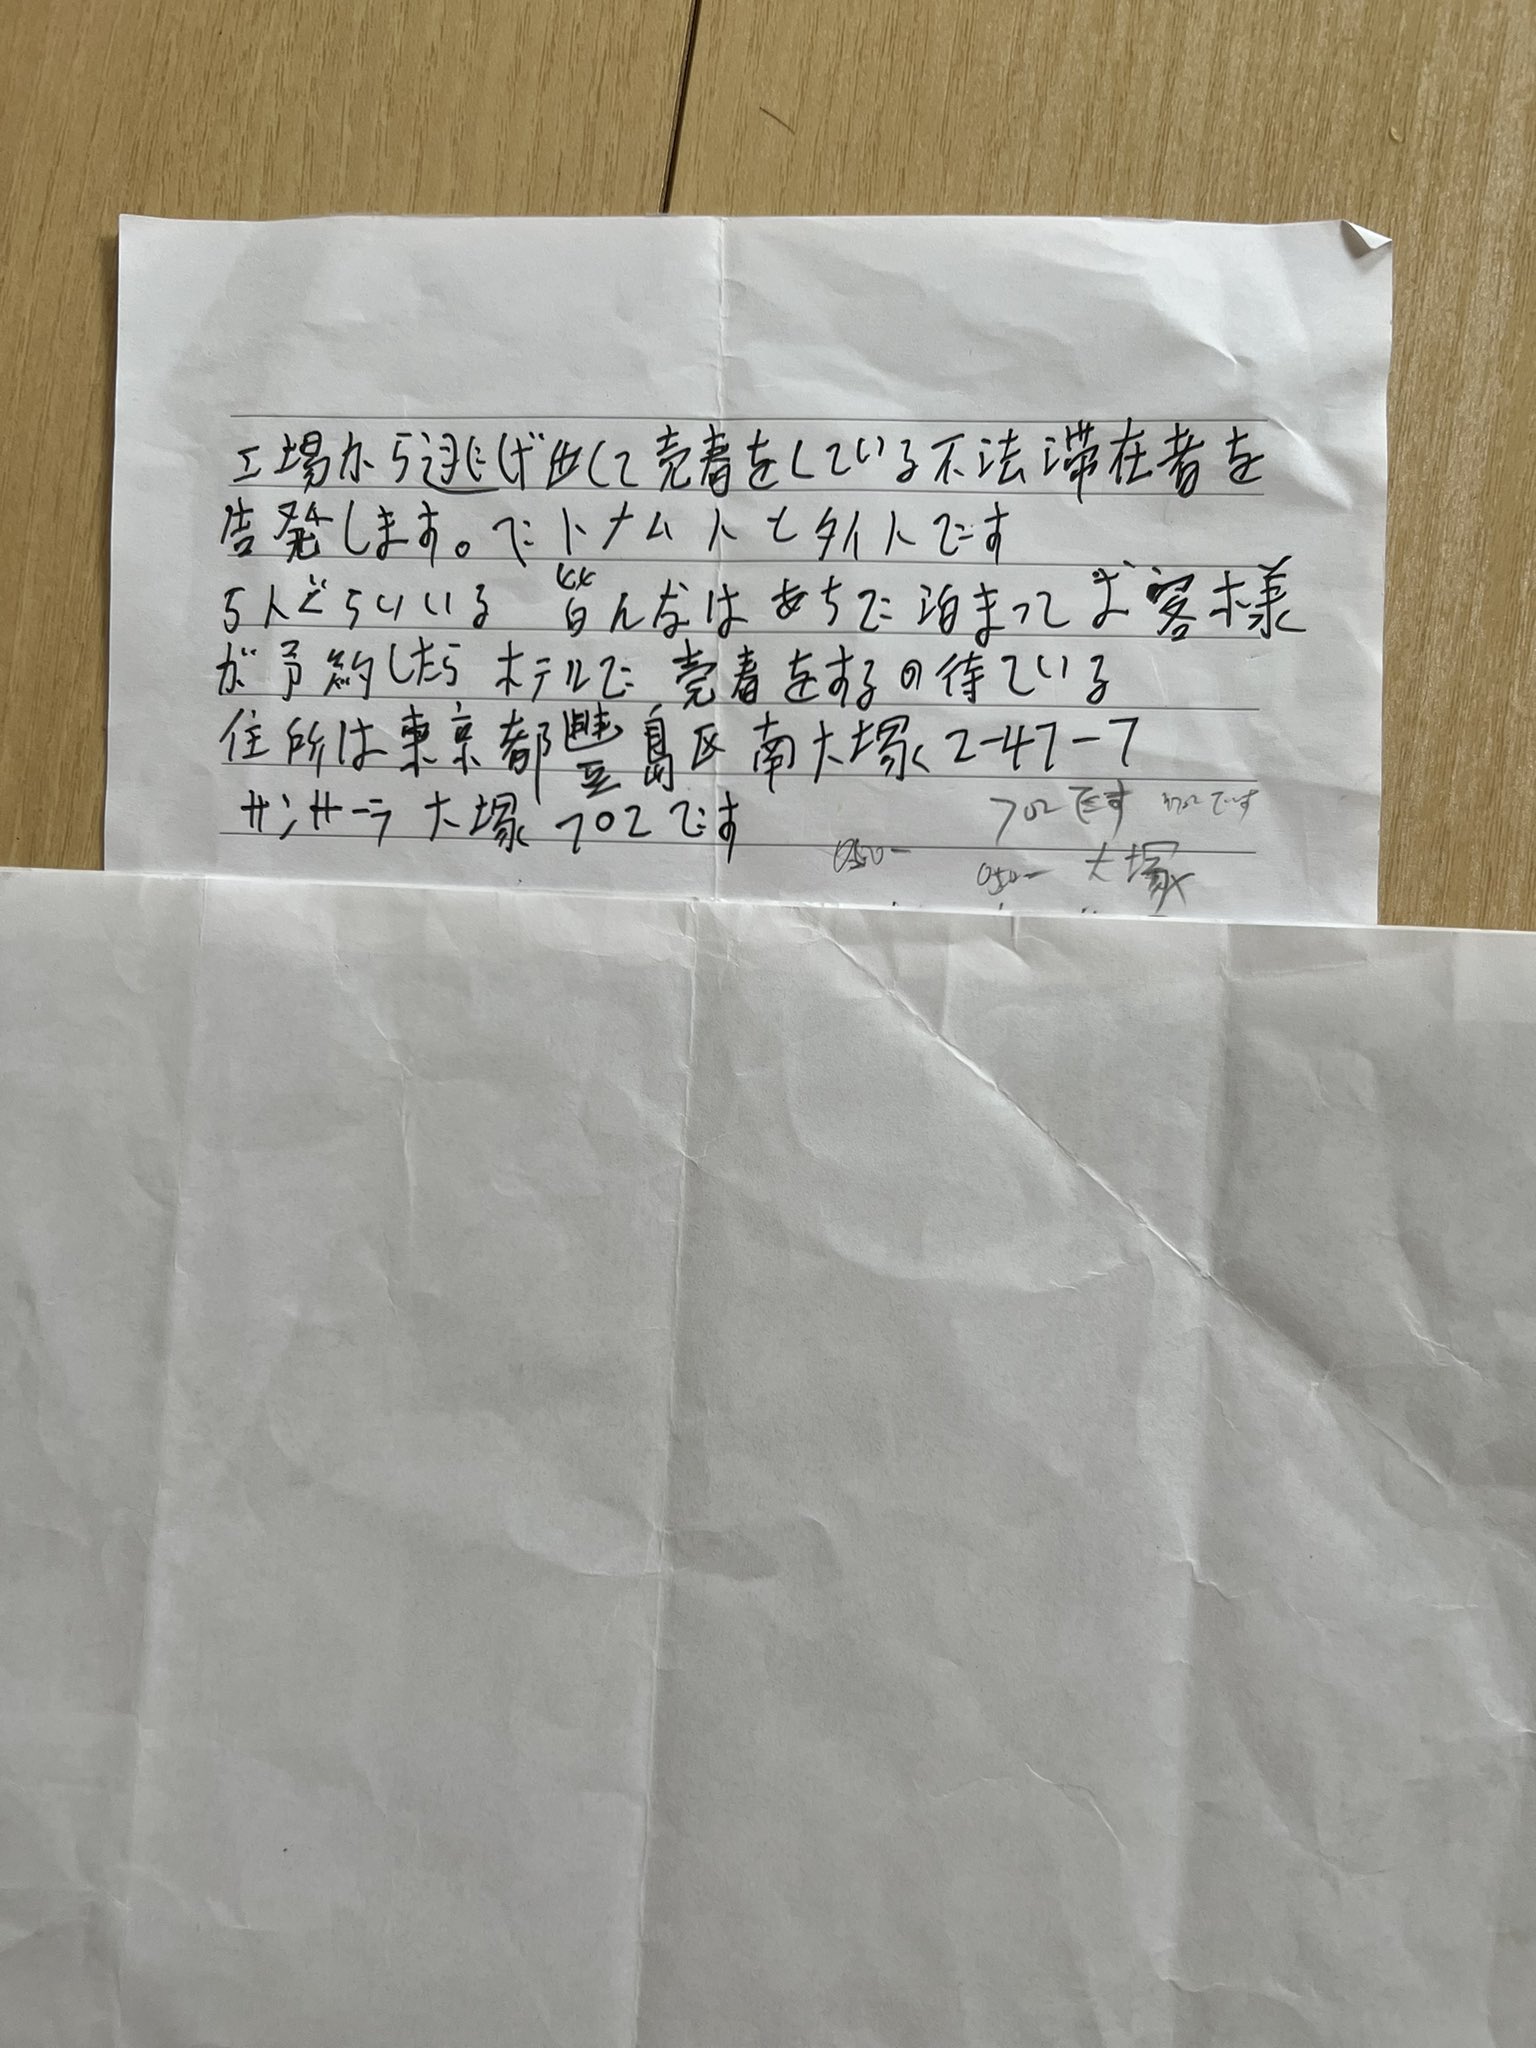 工場から逃げ出して売春をしている不法滞在者を
告発します。でトナム人とタイ人です
5人ぐらいいる 皆んなはあちで泊まってお客様
が予約したらホテルで売春をするの待ている
住所は東京都豊島区南大塚2-47-7
サンサーラ大塚702です
702です 702です
050- 050- 大塚